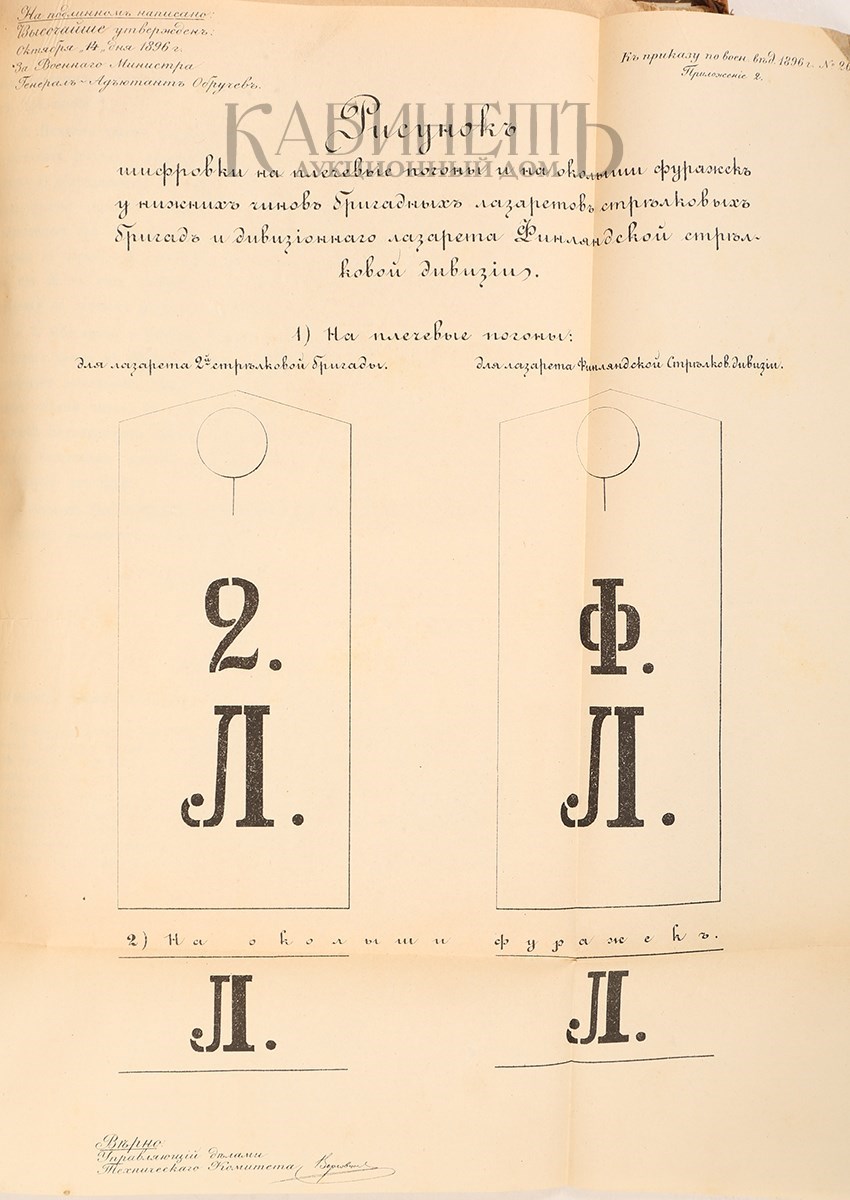 На подлинномъ написано:
Высочайше утвержденъ.
Октября „14„ дня 1896 г.
За Военнаго Министра
Генералъ-Адъютантъ Обручевъ.
Къ приказу по воен. вѣд. 1896 г. №
Приложеніе 2.
КАБИНЕТЪ
АУКЦИОННЫЙ ДОМ
Рисунокъ
шифровки на плечевые погоны и на околыши фуражек
у нижнихъ чиновъ бригадныхъ лазаретовъ стрѣлковыхъ
бригадъ и дивизіоннаго лазарета Финляндской стрѣл-
ковой дивизіи.
1) На плечевые погоны:
для лазарета 2й стрѣлковой бригады.
для лазарета Финляндской Стрѣлков. дивизіи.
2.
Л.
Ф.
Л.
2) На околыши фуражекъ.
Л.
Л.
Вѣрно:
Управляющій дѣлами
Техническаго Комитета